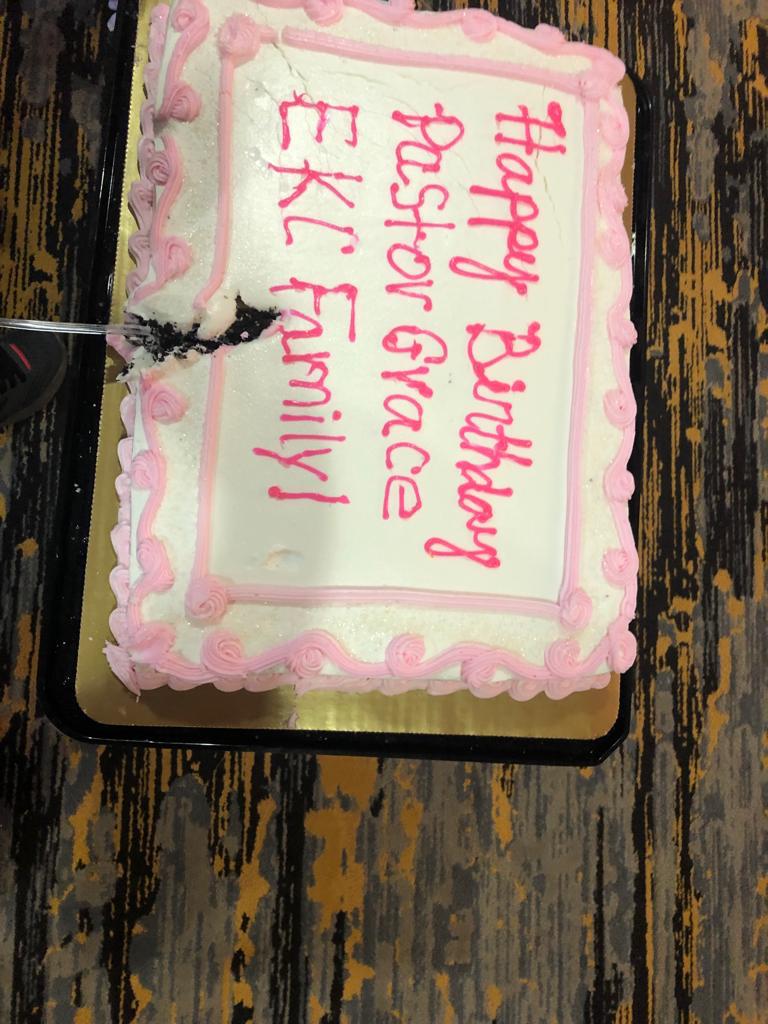 Happy Birthday
Pastor Grace
EKC Family!